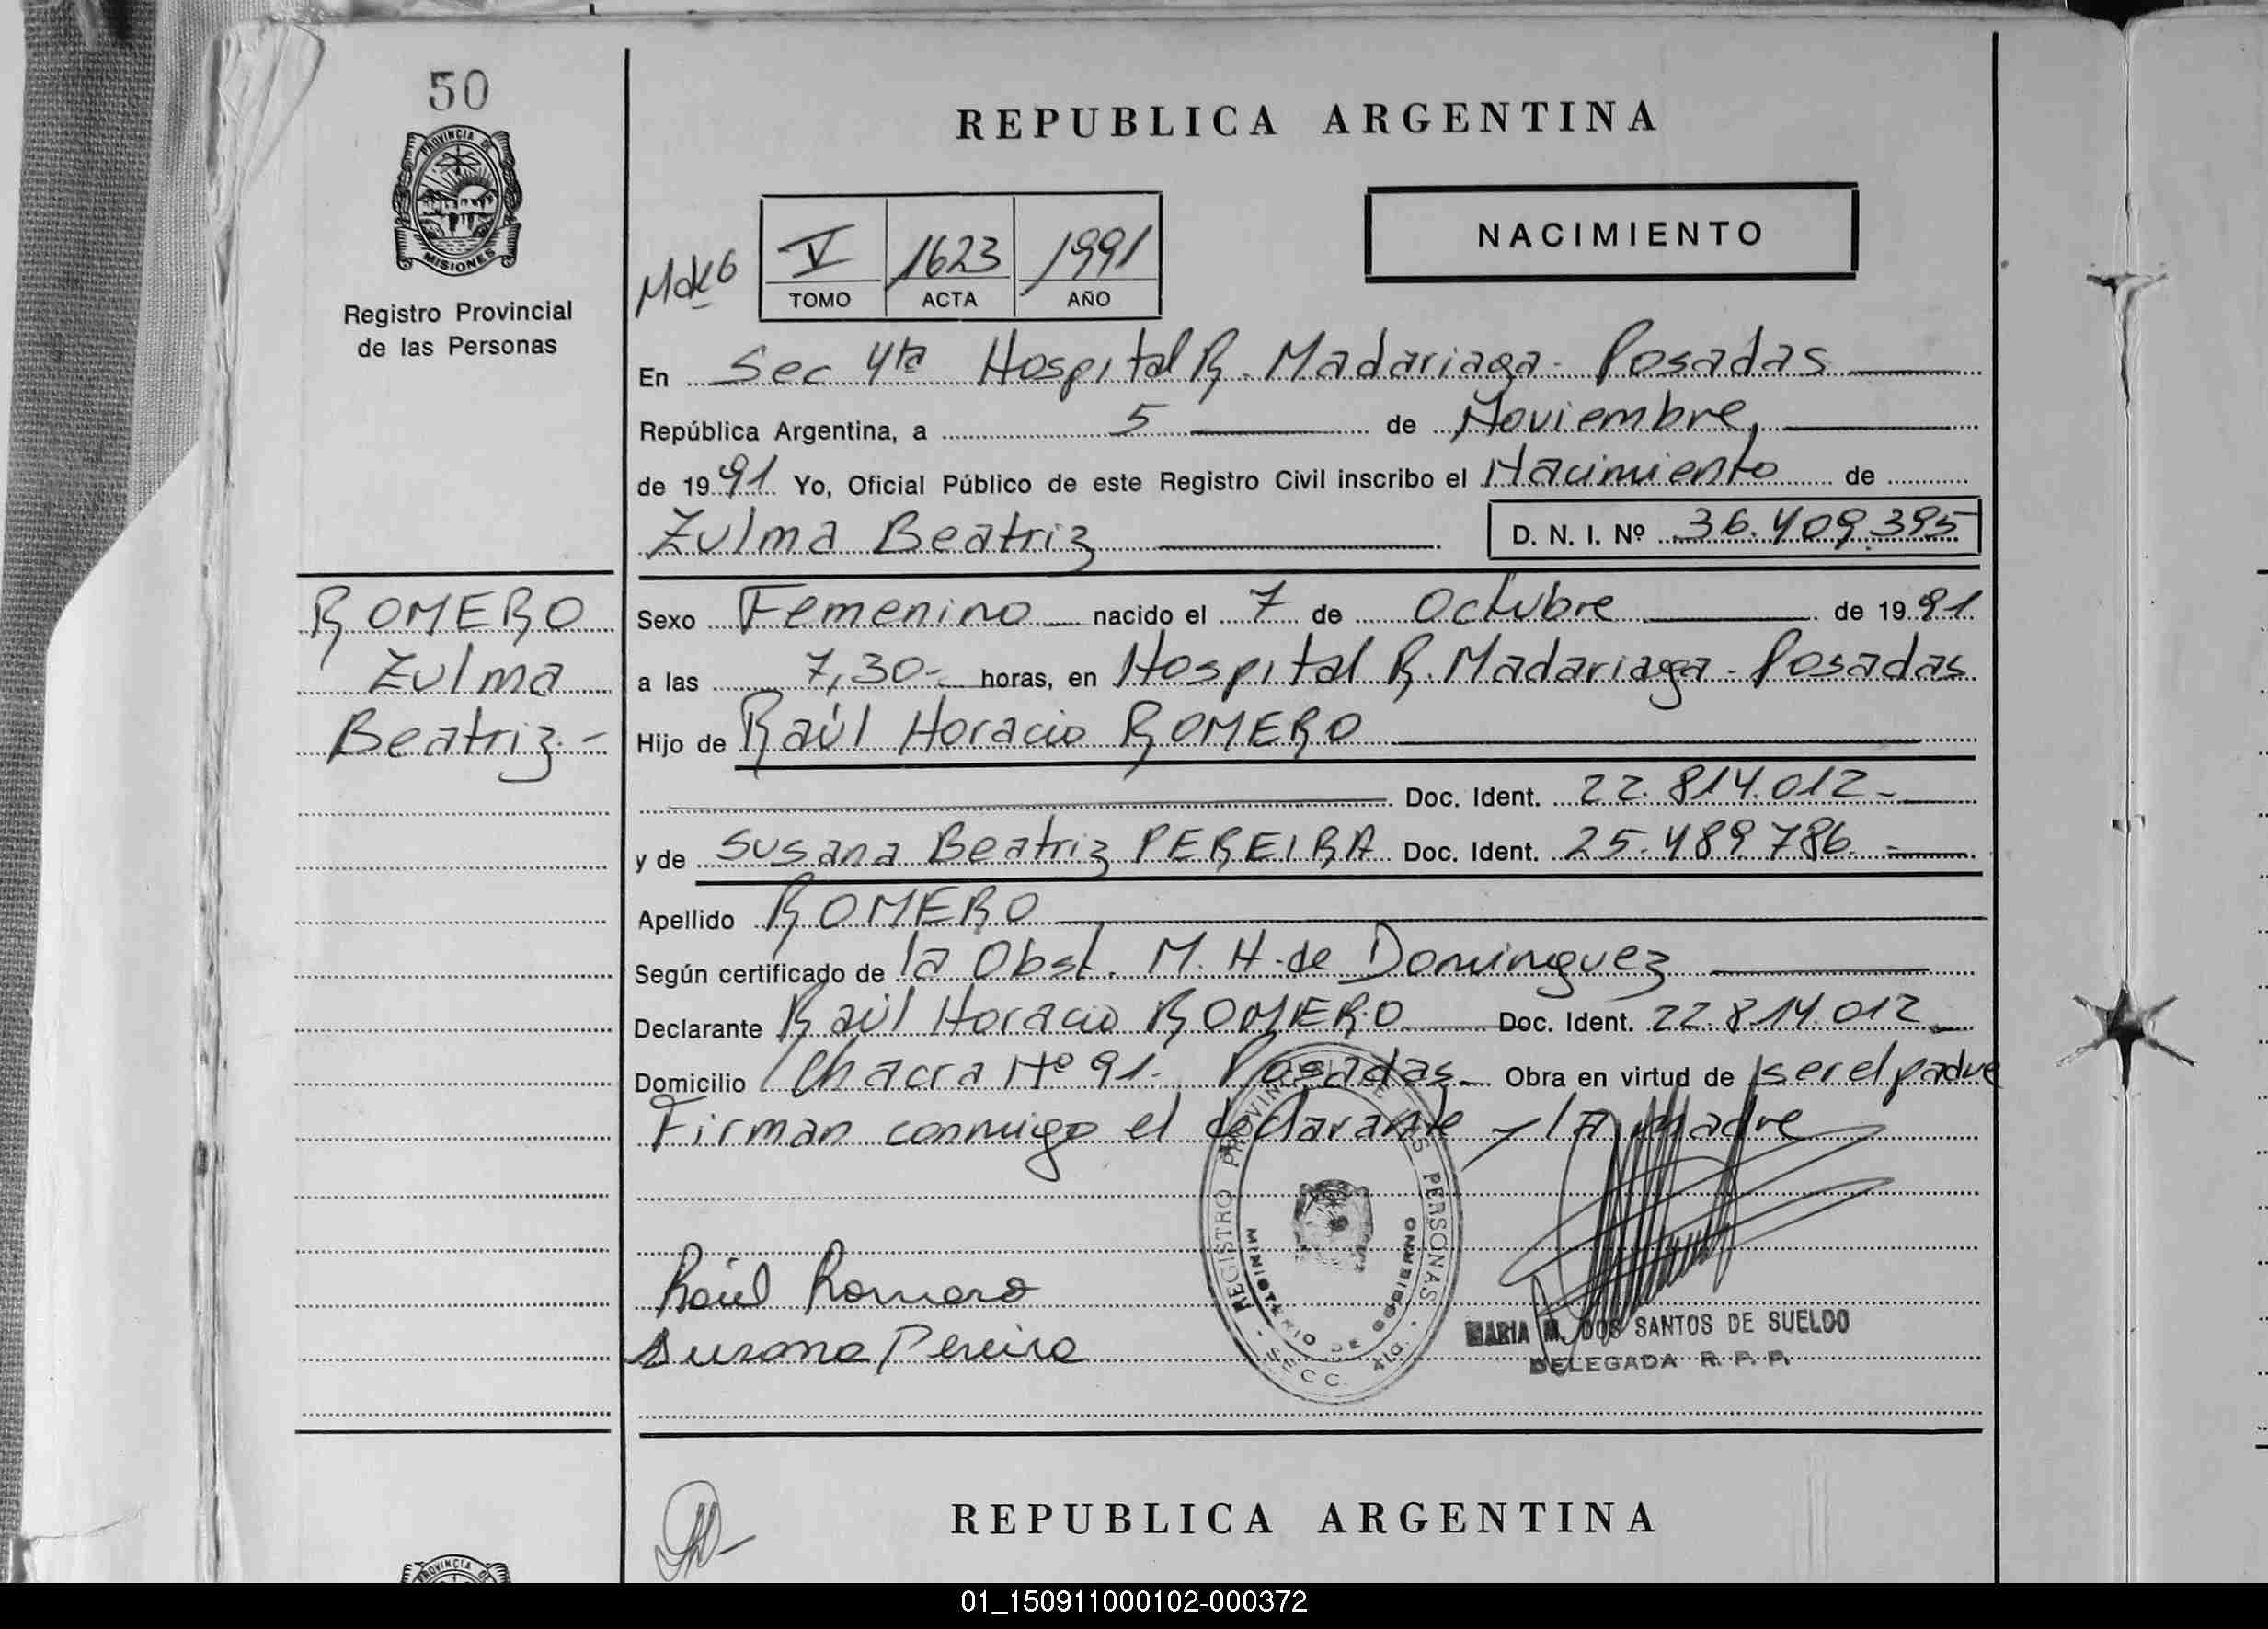 50
PROVINCIA DE
MISIONES
Registro Provincial
de las Personas
REPUBLICA ARGENTINA
NACIMIENTO
V 1623 1991
TOMO ACTA AÑO
En Sec 4ta Hospital R. Madariaga - Posadas
República Argentina, a 5 de Noviembre,
de 1991 Yo, Oficial Público de este Registro Civil inscribo el Nacimiento de
Zulma Beatriz D. N. I. Nº 36.409.395
ROMERO
Zulma
Beatriz.-
Sexo Femenino nacido el 7 de Octubre de 1991.
a las 7,30- horas, en Hospital R. Madariaga - Posadas
Hijo de Raúl Horacio ROMERO
Doc. Ident. 22.814.012-
y de Susana Beatriz PEREIRA Doc. Ident. 25.489.786.-
Apellido ROMERO
Según certificado de la Obst. M. H. de Dominguez
Declarante Raúl Horacio ROMERO Doc. Ident. 22.814.012
Domicilio Chacra Nº 91. Posadas Obra en virtud de ser el padre
Firman conmigo el declarante y la madre
REGISTRO PROVINCIAL DE LAS PERSONAS
MINISTERIO DE GOBIERNO
SECC. 4ta.
Raúl Romero
Susana Pereira
MARIA M. DOS SANTOS DE SUELDO
DELEGADA R. P. P.
REPUBLICA ARGENTINA
PROVINCIA
01_150911000102-000372